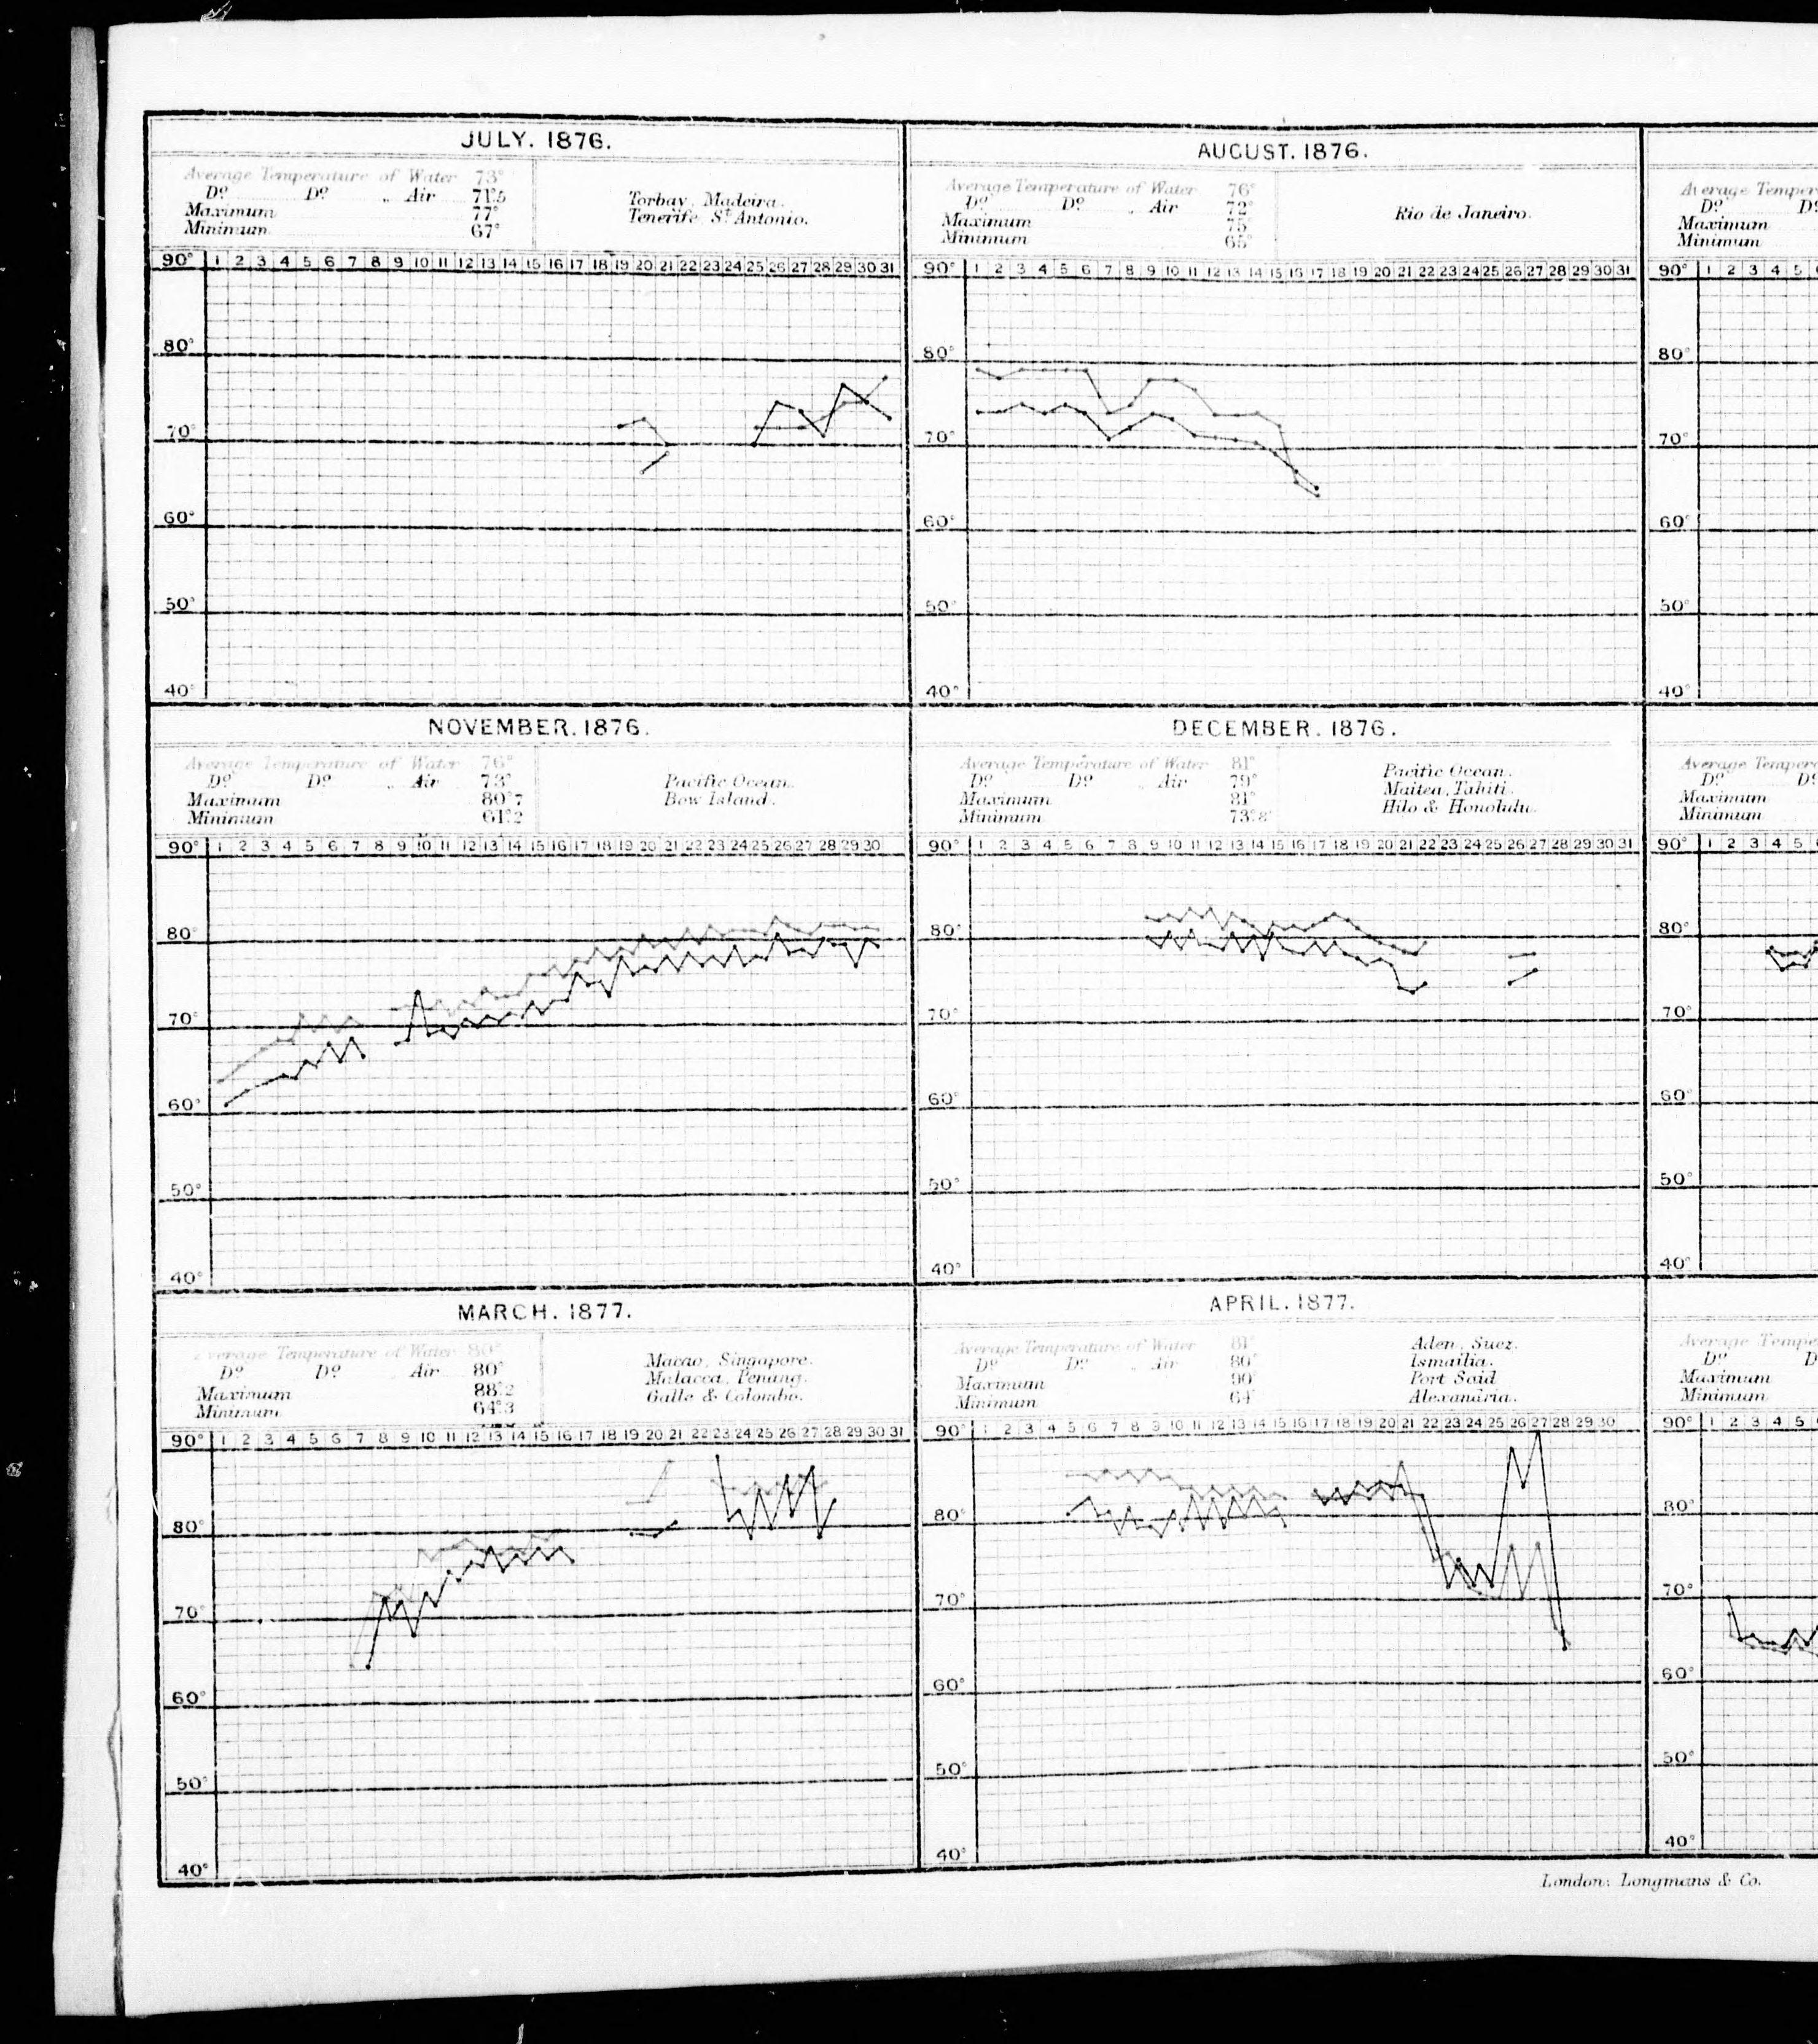 JULY. 1876.
Average Temperature of Water 73°
Dº Dº „ Air 71°.5
Maximum 77°
Minimum 67°
Torbay, Madeira.
Tenerife St Antonio.
90° 1 2 3 4 5 6 7 8 9 10 11 12 13 14 15 16 17 18 19 20 21 22 23 24 25 26 27 28 29 30 31
80°
70°
60°
50°
40°
AUGUST. 1876.
Average Temperature of Water 76°
Dº Dº „ Air 72°
Maximum 75°
Minimum 65°
Rio de Janeiro.
90° 1 2 3 4 5 6 7 8 9 10 11 12 13 14 15 16 17 18 19 20 21 22 23 24 25 26 27 28 29 30 31
80°
70°
60°
50°
40°
Average Temper
Dº Dº
Maximum
Minimum
90° 1 2 3 4 5
80°
70°
60°
50°
40°
NOVEMBER. 1876.
Average Temperature of Water 76°
Dº Dº „ Air 73°
Maximum 80°.7
Minimum 61°.2
Pacific Ocean.
Bow Island.
90° 1 2 3 4 5 6 7 8 9 10 11 12 13 14 15 16 17 18 19 20 21 22 23 24 25 26 27 28 29 30
80°
70°
60°
50°
40°
DECEMBER. 1876.
Average Temperature of Water 81°
Dº Dº „ Air 79°
Maximum 81°
Minimum 73°.8
Pacific Ocean.
Maitea, Tahiti.
Hilo & Honolulu.
90° 1 2 3 4 5 6 7 8 9 10 11 12 13 14 15 16 17 18 19 20 21 22 23 24 25 26 27 28 29 30 31
80°
70°
60°
50°
40°
Average Tempera
Dº Dº
Maximum
Minimum
90° 1 2 3 4 5
80°
70°
60°
50°
40°
MARCH. 1877.
Average Temperature of Water 80°
Dº Dº „ Air 80°
Maximum 88°.2
Minimum 64°.3
Macao, Singapore.
Malacca, Penang.
Galle & Colombo.
90° 1 2 3 4 5 6 7 8 9 10 11 12 13 14 15 16 17 18 19 20 21 22 23 24 25 26 27 28 29 30 31
80°
70°
60°
50°
40°
APRIL. 1877.
Average Temperature of Water 81°
Dº Dº „ Air 80°
Maximum 90°
Minimum 64°
Aden, Suez.
Ismailia.
Port Said
Alexandria.
90° 1 2 3 4 5 6 7 8 9 10 11 12 13 14 15 16 17 18 19 20 21 22 23 24 25 26 27 28 29 30
80°
70°
60°
50°
40°
Average Tempe
Dº D
Maximum
Minimum
90° 1 2 3 4 5
80°
70°
60°
50°
40°
London: Longmans & Co.